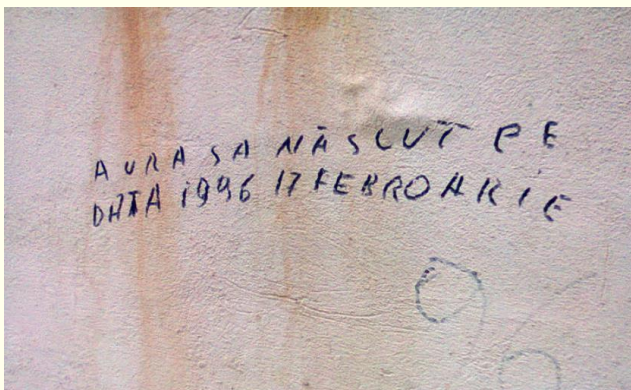 AURA SA NĂSCUT PE
DATA 1996 17 FEBROARIE